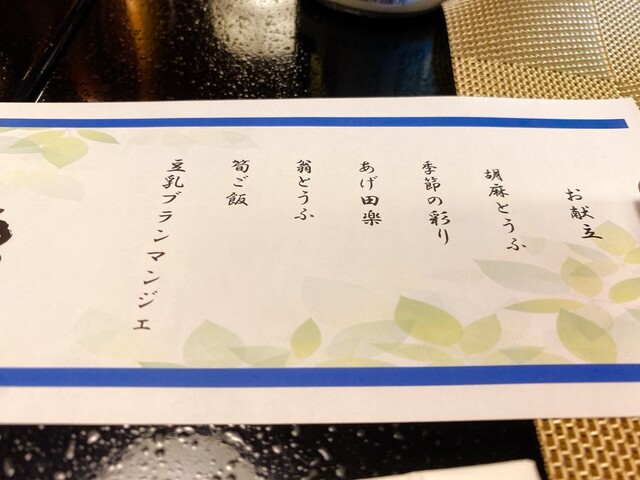 お献立
胡麻とうふ
季節の彩り
あげ田楽
翁とうふ
筍ご飯
豆乳ブランマンジェ